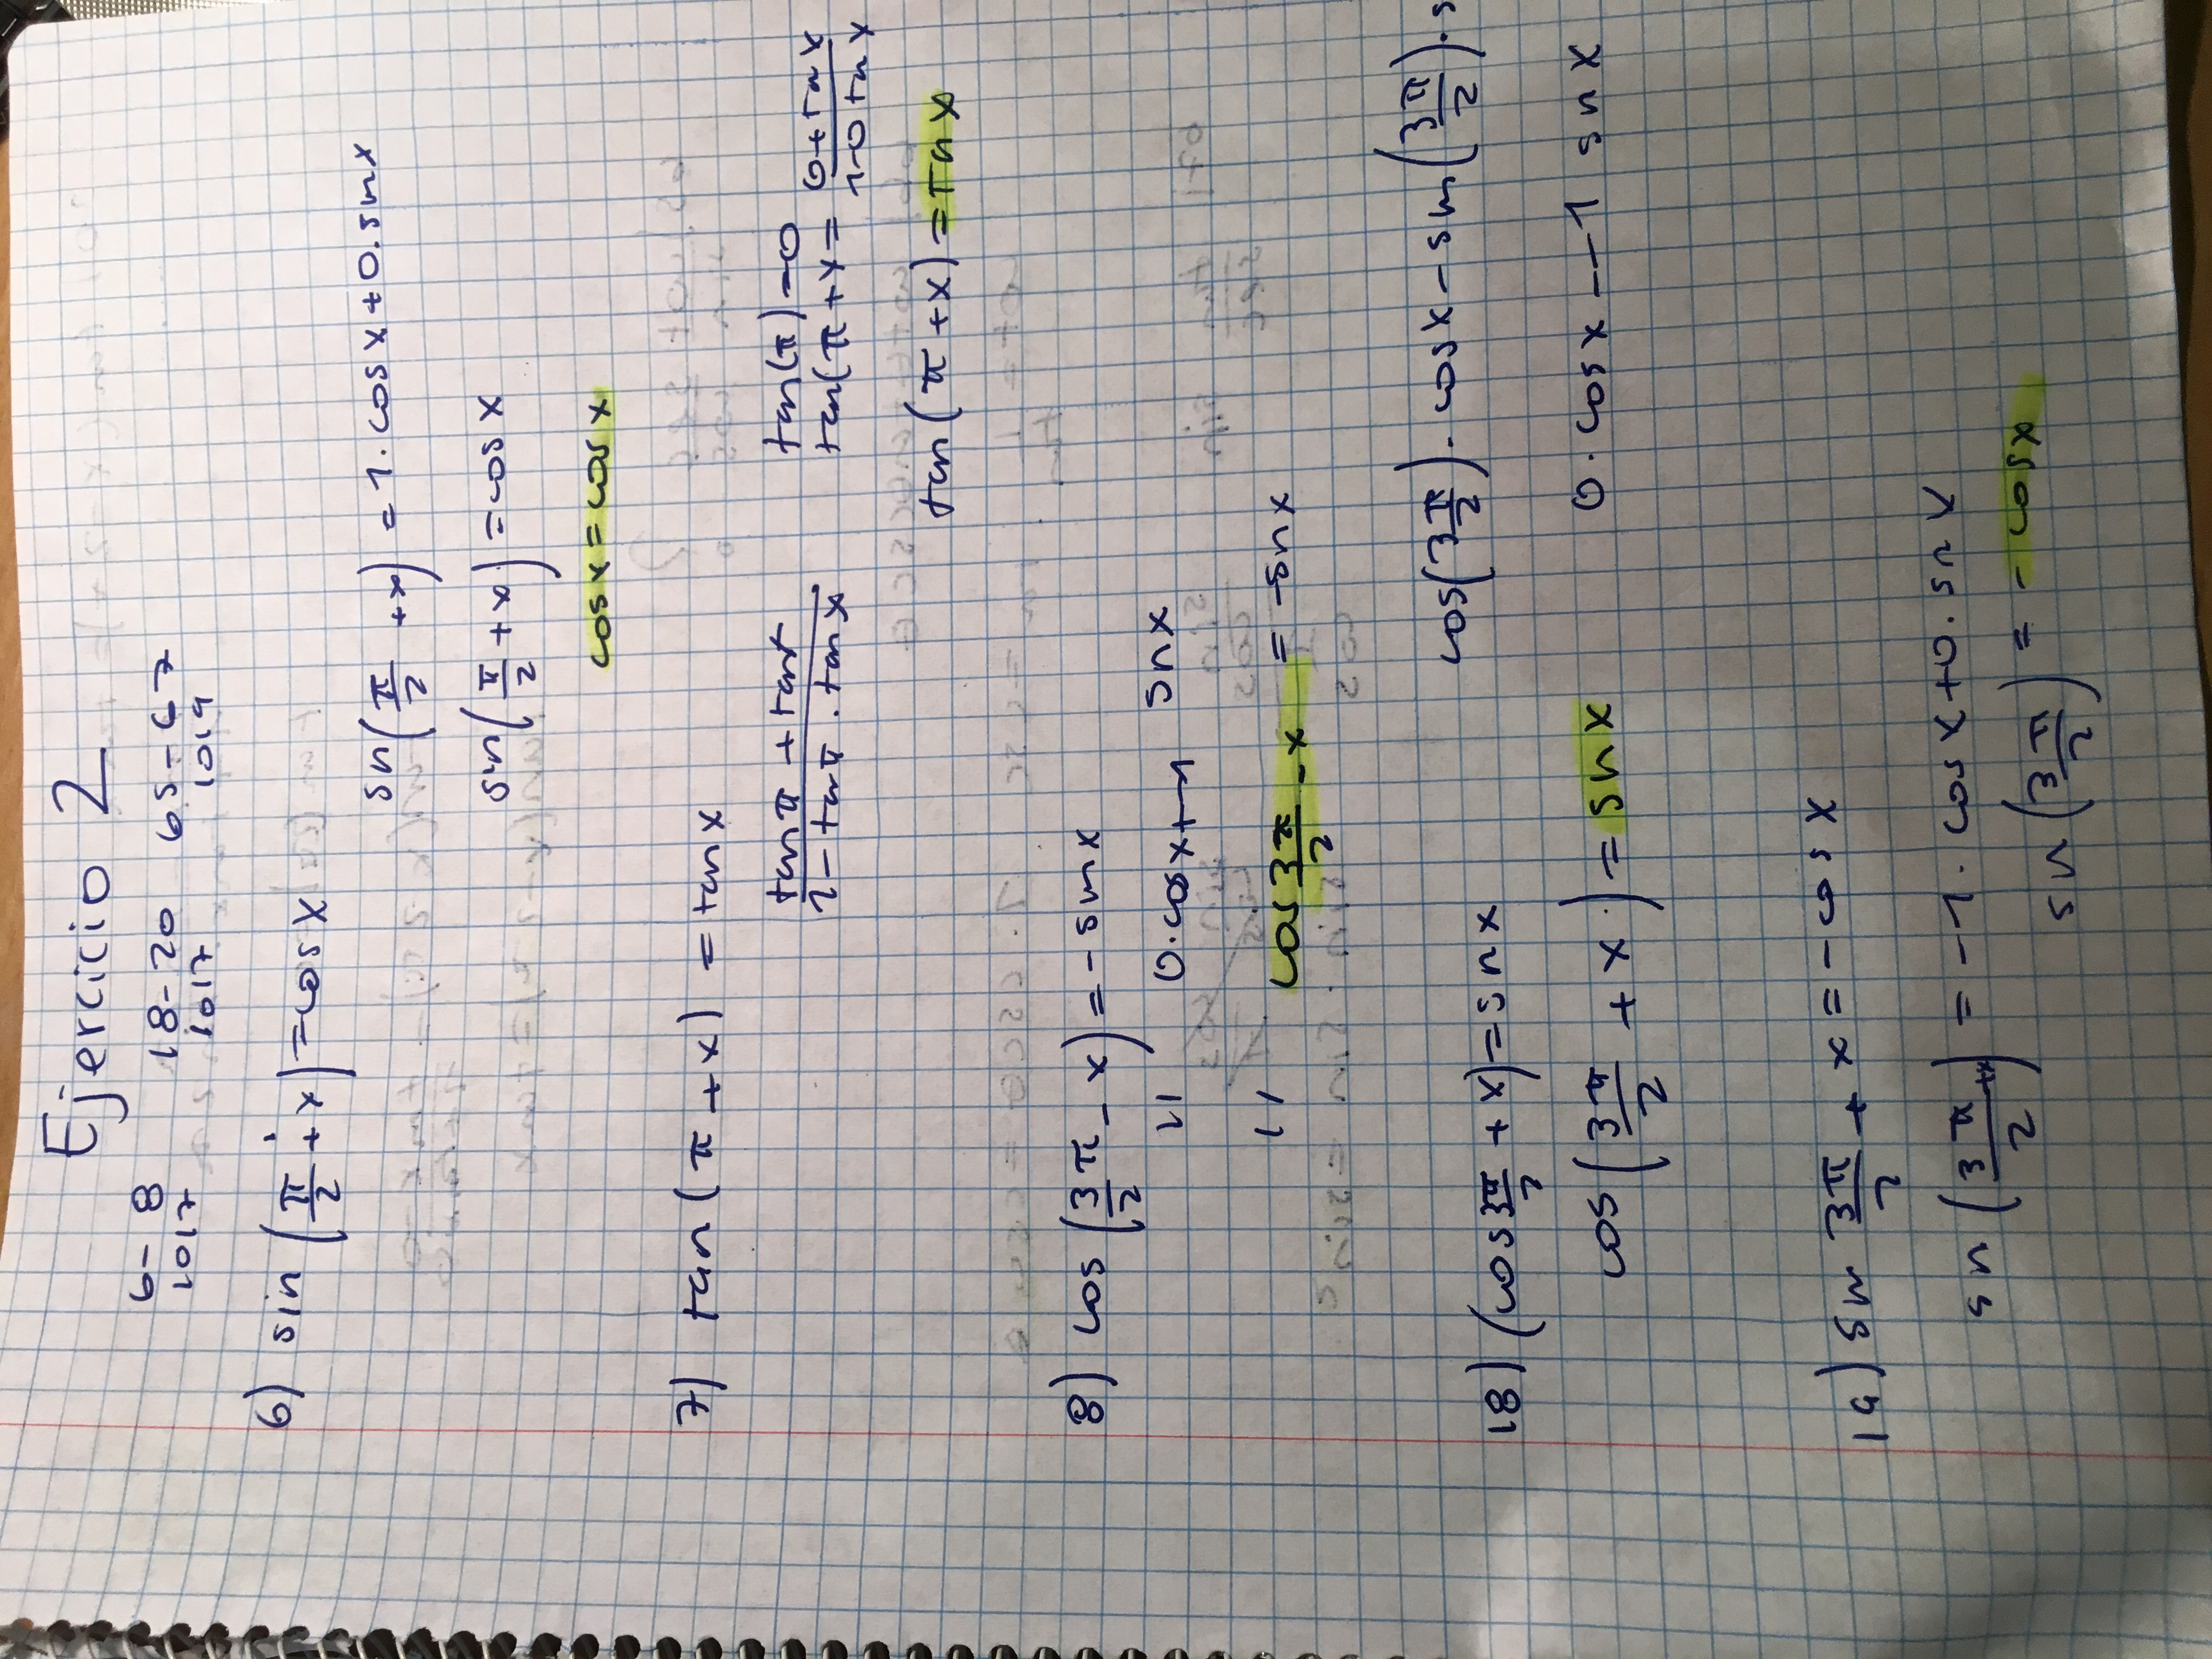 Ejercicio 2
6-8 18-20 65-67
1017 1017 1019
6) sin (π/2 + x) = cos x
sn (π/2 + x) = 1 . cos x + 0 . sin x
sin (π/2 + x) = cos x
cos x = cos x
7) tan (π + x) = tan x
tan π + tan x / 1 - tan π . tan x
tan (π) = 0
tan (π + x = 0 + tan x / 1 - 0 tan x
tan (π + x) = Tan x
8) cos (3π/2 - x) = - sin x
0 . cos x + -1 sn x
cos 3π/2 - x = - sn x
18) (cos 3π/2 + x) = sn x
cos (3π/2) . cos x - sin (3π/2) . s
cos (3π/2 + x) = sn x
0 . cos x - -1 sn x
19) sin 3π/2 + x = - cos x
sn (3π/2 + x) = -1 . cos x + 0 . sn x
sn (3π/2) = - cos x